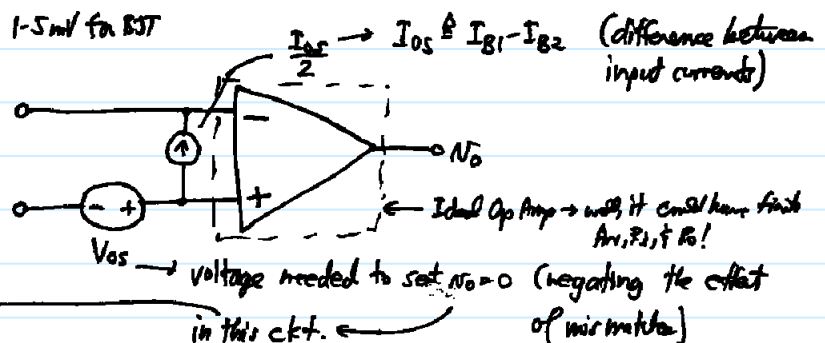 1-5mV for BJT
I_OS/2 → I_OS ≜ I_B1 - I_B2 (difference between
input currents)
-
+
N_o
← Ideal Op Amp → well, it could have finite
Av, Ri, & Ro!
- +
V_OS → voltage needed to set N_o=0 (negating the effect
in this ckt. ← of mismatches)